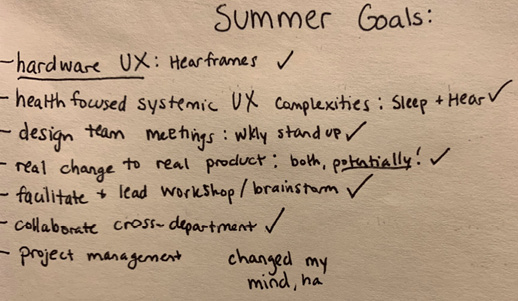 Summer Goals:
- hardware UX: Hearframes ✓
- health focused systemic UX complexities: Sleep + Hear ✓
- design team meetings: wkly stand up ✓
- real change to real product: both, potentially! ✓
- facilitate + lead workshop/brainstorm ✓
- collaborate cross-department ✓
- project management changed my
mind, ha